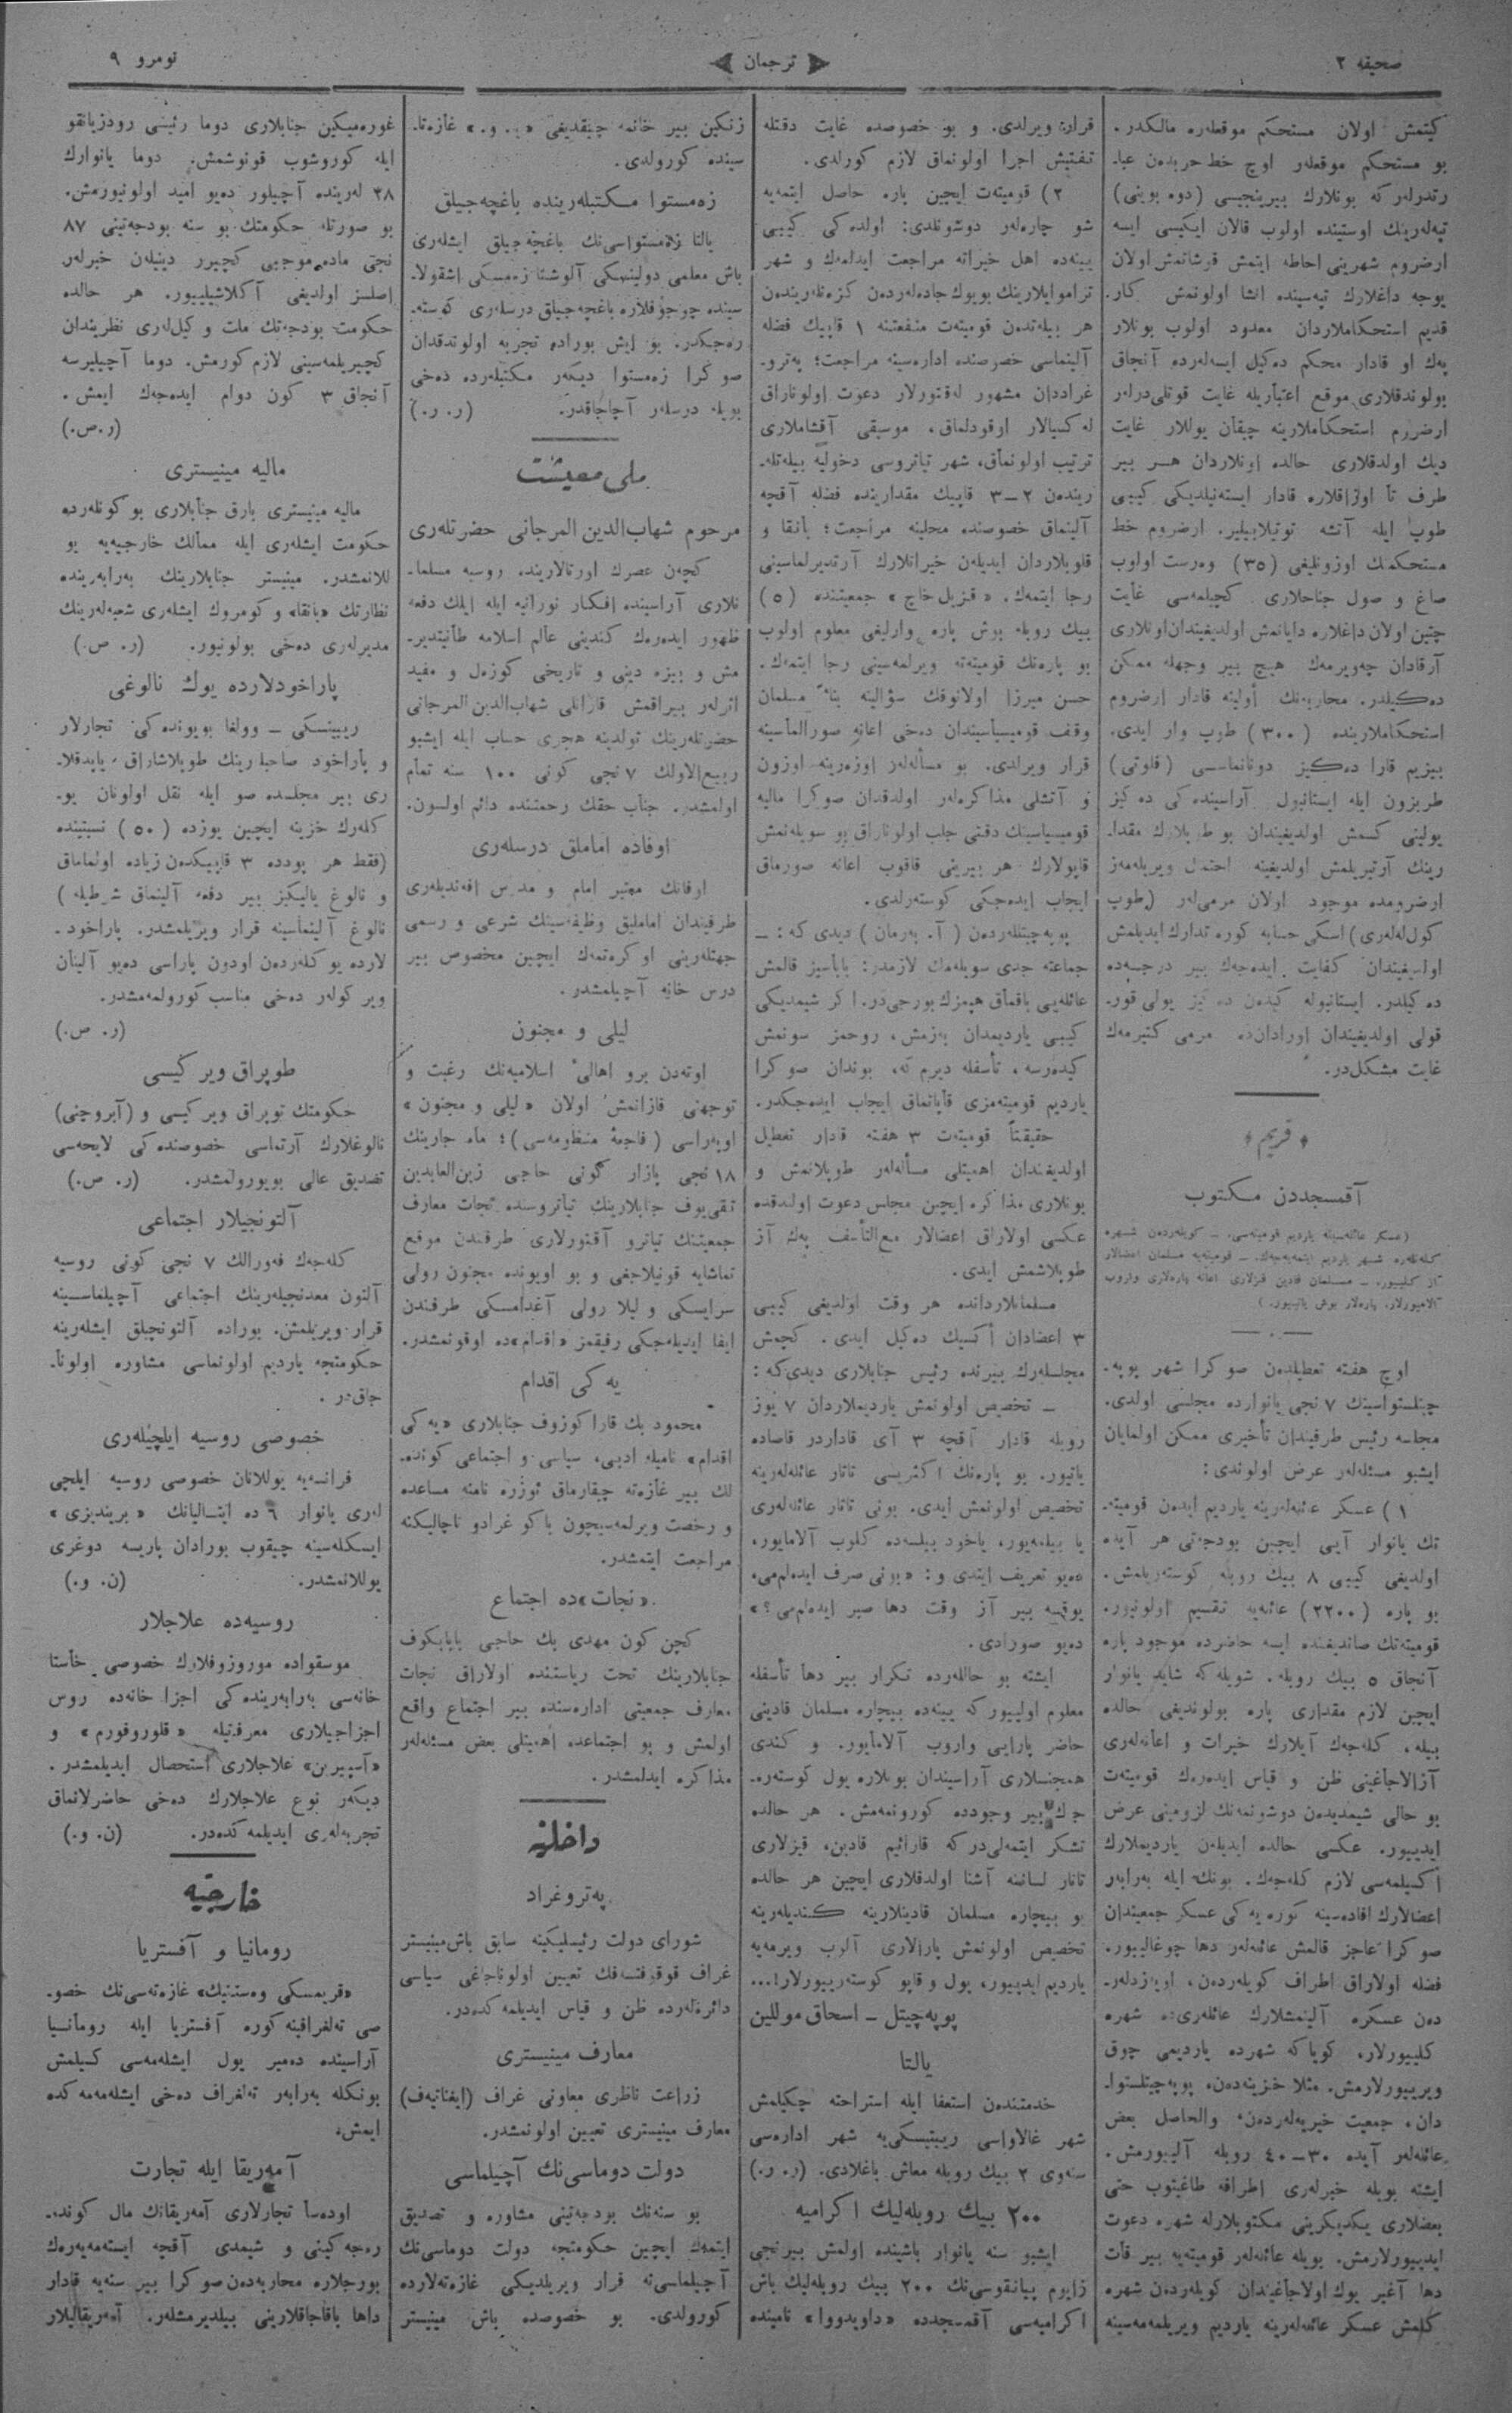 صحیفه ٢
ترجمان
نومرو ٩
کیتمش اولان مستحکم موقعلره مالکدر.
بو مستحکم موقعلر اوچ خط حربدن عبا-
رتدرلر که بونلارك بیرینجیسی (دوه بوینی)
تپه‌لرینك اوستینده اولوب قالان ایکیسی ایسه
ارضروم شهرینی احاطه ایتمش قوشاتمش اولان
یوجه داغلارك تپه‌سینده انشا اولونمش کار.
قدیم استحکاملاردان معدود اولوب بونلار
په‌ك او قادار محکم ده‌کیل ایسه‌لرده آنجاق
بولوندقلاری موقع اعتباریله غایت قوتلی‌درلر
ارضروم استحکاملارینه چیقان یوللار غایت
دیك اولدقلاری حالده اونلاردان هر بیر
طرف تا اوزاقلاره قادار ایسته‌نیلدیکی کیبی
طوپ ایله آتشه توتیلابیلیر. ارضروم خط
مستحکمنك اوزونلیغی (٣٥) وه‌رست اولوب
صاغ و صول جناحلاری کچیلمه‌سی غایت
چتین اولان داغلاره دایانمش اولدیغیندان اونلاری
آرقادان چه‌ویرمه‌ك هیچ بیر وجهله ممکن
ده‌کیلدر. محاربه‌نك أولینه قادار ارضروم
استحکاملارینده (٣٠٠) طوپ وار ایدی.
بیزیم قارا ده‌کیز دونانماسی (فلوتی)
طربزون ایله ایستانبول آراسینده کی ده‌کیز
یولینی کسمش اولدیغیندان بو طوپلارك مقدا-
رینك آرتیریلمش اولدیغینه احتمال ویریله‌مه‌ز
ارضرومده موجود اولان مرمی‌لر (طوپ
کول‌له‌لری) اسکی حسابه کوره تدارك ایدیلمش
اولدیغیندان کفایت ایده‌جه‌ك بیر درجه‌ده
ده‌کیلدر. ایستانبوله کیدن ده‌کیز یولی قور-
قولی اولدیغیندان اورادان‌ده مرمی کتیرمه‌ك
غایت مشکل‌در.
قریم
آقمسجددن مکتوب
(عسکر عائله‌سینه یاردیم قومیته‌سی. – کویله‌ردن شهره
کله‌نله‌ره شهر یاردیم ایتمه‌یه‌جه‌ك. – قومیته‌یه مسلمان اعضالار
آز کلییور. – مسلمان قادین قیزلاری اعانه پاره‌لاری واروب
آلامیورلار، پاره‌لار بوش یاتییور.)
اوچ هفته تعطیلدن صوکرا شهر پوپه‌-
چیتلستواسینك ٧ نجی یانوارده مجلسی اولدی.
مجلسه رئیس طرفیندان تأخیری ممکن اولمایان
ایشبو مسئله‌لر عرض اولوندی:
١) عسکر عائله‌لرینه یاردیم ایدن قومیته-
نك یانوار آیی ایچین بودجه‌تی هر آیده
اولدیغی کیبی ٨ بیك روبله کوسته‌ریلمش.
بو پاره (٢٢٠٠) عائله‌یه تقسیم اولونیور.
قومیته‌نك صاندیغنده ایسه حاضرده موجود پاره
آنجاق ٥ بیك روبله. شویله که شاید یانوار
ایچین لازم مقداری پاره بولوندیغی حالده
بیله، کله‌جه‌ك آیلارك خیرات و اعانه‌لری
آزالاجاغینی ظن و قیاس ایده‌رك قومیته‌ت
بو حالی شیمدیدن دوشونمه‌نك لزومینی عرض
ایدییور. عکسی حالده ایدیلن یاردیملارك
اکسیلمه‌سی لازم کله‌جه‌ك. بونك ایله به‌رابه‌ر
اعضالارك افاده‌سینه کوره یه کی عسکر جمعیندان
صوکرا عاجز قالمش عائله‌لر دها چوغالییور.
فضله اولاراق اطراف کویله‌ردن، اویه‌زدله‌ر-
دن عسکره آلینمشلارك عائله‌لری‌ده شهره
کلییورلار، کویا که شهرده یاردیمی چوق
ویرییورلارمش. مثلا خزینه‌دن، پوپه‌چیتلستوا-
دان، جمعیت خیریه‌له‌ردن، والحاصل بعض
عائله‌لر آیده ٣٠–٤٠ روبله آلییورمش.
ایشته بویله خبرلری اطرافه طاغیتوب حتی
بعضلاری یکدیکرینی مکتوبلارله شهره دعوت
ایدییورلارمش. بویله عائله‌لر قومیته‌یه بیر قات
دها آغیر یوك اولاجاغیندان کویله‌ردن شهره
کلمش عسکر عائله‌لرینه یاردیم ویریلمه‌مه‌سینه
قرار ویرلدی. و بو خصوصده غایت دقتله
تفتیش اجرا اولونماق لازم کورلدی.
٢) قومیته‌ت ایچین پاره حاصل ایتمه‌یه
شو چاره‌لر دوشونلدی: اولده کی کیبی
یینه‌ده اهل خیراته مراجعت ایدلمه‌ك و شهر
تراموایلارینك بویوك جاده‌له‌ردن کزه‌نله‌ریندن
هر بیله‌تدن قومیته‌ت منفعتنه ١ قاپیك فضله
آلینماسی خصوصنده اداره‌سینه مراجعت؛ په‌ترو-
غراددان مشهور له‌قتورلار دعوت اولوناراق
له‌کسیالار اوقودلماق، موسیقی آقشاملاری
ترتیب اولونماق، شهر تیاتروسی دخولیه بیله‌تله‌-
ریندن ٢–٣ قاپیك مقدارینده فضله آقچه
آلینماق خصوصنده محلینه مراجعت؛ بانقا و
قلوبلاردان ایدیلن خیراتلارك آرتدیرلماسینی
رجا ایتمه‌ك. «قزیل خاچ» جمعیتنده (٥)
بیك روبله بوش پاره وارلیغی معلوم اولوب
بو پاره‌نك قومیته‌ته ویرلمه‌سینی رجا ایتمه‌ك.
حسن میرزا اولانوفك سؤالینه بناً مسلمان
وقف قومیسیاسیندان ده‌خی اعانه صورالماسینه
قرار ویرلدی. بو مسأله‌لر اوزه‌رینه اوزون
و آتشلی مذاکره‌لر اولدقدان صوکرا مالیه
قومیسیاسینك دقتی جلب اولوناراق بو سویله‌نمش
قاپولارك هر بیرینی قاقوب اعانه صورماق
ایجاب ایده‌جکی کوسته‌رلدی.
پوپه‌چیتلله‌ردن (آ. به‌رمان) دیدی که: –
جماعته جدی سویله‌مك لازمدر: بابأسیز قالمش
عائله‌یی باقماق هپمزك بورجی‌در. اکر شیمدیکی
کیبی یاردیمدان به‌زمش، روحمز سونمش
کیده‌رسه، تأسفله دیرم که، بوندان صوکرا
یاردیم قومیته‌مزی قاپانماق ایجاب ایده‌جکدر.
حقیقتاً قومیته‌ت ٣ هفته قادار تعطیل
اولدیغیندان اهمیتلی مسأله‌لر طوپلانمش و
بونلاری مذاکره ایچین مجلس دعوت اولندقده
عکسی اولاراق اعضالار مع‌التأسف په‌ك آز
طوپلاشمش ایدی.
مسلمانلاردانده هر وقت اولدیغی کیبی
٣ اعضادان أکسیك ده‌کیل ایدی. کچمش
مجلسله‌رك بیرنده رئیس جنابلاری دیدی که:
– تخصیص اولونمش یاردیملاردان ٧ یوز
روبله قادار آقچه ٣ آی قاداردر قاصاده
یاتیور. بو پاره‌نك اکثریسی تاتار عائله‌لرینه
تخصیص اولونمش ایدی. بونی تاتار عائله‌لری
یا بیلمه‌یور، یاخود بیلسه‌ده کلوب آلامایور،
ده‌یو تعریف ایتدی و: «بونی صرف ایده‌لم‌می،
یوقسه بیر آز وقت دها صبر ایده‌لم‌می؟»
ده‌یو صورادی.
ایشته بو حالله‌رده تکرار بیر دها تأسفله
معلوم اولییور که یینه‌ده بیچاره مسلمان قادینی
حاضر پارایی واروب آلامایور. و کندی
همجنسلاری آراسیندان بونلاره یول کوسته‌ره-
جه‌ك بیر وجودده کورونمه‌مش. هر حالده
تشکر ایتمه‌لی‌در که قارائیم قادین، قیزلاری
تاتار لساننه آشنا اولدقلاری ایچین هر حالده
بو بیچاره مسلمان قادینلارینه کندیله‌رینه
تخصیص اولونمش پارالاری آلوب ویرمه‌یه
یاردیم ایدییور، یول و قاپو کوسته‌رییورلار!...
پوپه‌چیتل – اسحاق موللین
یالتا
خدمتندن استعفا ایله استراحته چکیلمش
شهر غالاواسی ریبیتسکی‌یه شهر اداره‌سی
سنه‌وی ٢ بیك روبله معاش باغلادی. (ر. ر.)
٢٠٠ بیك روبله‌لیك اکرامیه
ایشبو سنه یانوار باشینده اولمش بیرنجی
زایوم بیانقوسی‌نك ٢٠٠ بیك روبله‌لیك باش
اکرامیه‌سی آقمسجدده «داویدووا» نامینده
زنکین بیر خانمه چیقدیغی «ی. و.» غازه‌تا-
سینده کورولدی.
زه‌مستوا مکتبله‌رینده باغچه‌جیلق
یالتا زه‌مستواسی‌نك باغچه‌جیلق ایشله‌ری
باش معلمی دولینسکی آلوشتا زه‌مسکی اشقولا-
سینده چوجوقلاره باغچه‌جیلق درسله‌ری کوسته-
ره‌جکدر. بو ایش بوراده تجربه اولوندقدان
صوکرا زه‌مستوا دیکه‌ر مکتبله‌رده ده‌خی
بویله درسلر آچاجاقدر. (ر. ر.)
ملی معیشت
مرحوم شهاب‌الدین المرجانی حضرتله‌ری
کچه‌ن عصرك اورتالارینده روسیه مسلما-
نلاری آراسینده افکار نورانیه ایله ایلك دفعه
ظهور ایده‌رك کندینی عالم اسلامه طانیتدیر-
مش و بیزه دینی و تاریخی کوزه‌ل و مفید
اثرله‌ر بیراقمش قازانلی شهاب‌الدین المرجانی
حضرتله‌رینك تولدینه هجری حساب ایله ایشبو
ربیع‌الاولك ٧ نجی کونی ١٠٠ سنه تمام
اولمشدر. جناب حقك رحمتنده دائم اولسون.
اوفاده اماملق درسله‌ری
اوفانك معتبر امام و مدرس افندیله‌ری
طرفیندان اماملیق وظیفه‌سینك شرعی و رسمی
جهتله‌رینی اوکره‌تمه‌ك ایچین مخصوص بیر
درس خانه آچیلمشدر.
لیلی و مجنون
اوته‌دن برو اهالیٔ اسلامیه‌نك رغبت و
توجهنی قازانمش اولان «لیلی و مجنون»
اوپه‌راسی (فاجعهٔ منظومه‌سی)؛ ماه جارینك
١٨ نجی پازار کونی حاجی زین‌العابدین
تقی‌یوف جنابلارینك تیاتروسنده نجات معارف
جمعیتنك تیاترو آقتورلاری طرفندن موقع
تماشایه قونیلاجغی و بو اویونده مجنون رولی
سرابسکی و لیلا رولی آغدامسکی طرفندن
ایفا ایدیله‌جکی رفیقمز «اقدام»ده اوقونمشدر.
یه کی اقدام
محمود بك قاراکوزوف جنابلاری «یه کی
اقدام» نامیله ادبی، سیاسی و اجتماعی کونده-
لك بیر غازه‌ته چیقارماق ئوزره نامنه مساعده
و رخصت ویرلمه‌سیچون باکو غرادو ناچالنیکنه
مراجعت ایتمشدر.
«نجات»ده اجتماع
کچن کون مهدی بك حاجی بابابکوف
جنابلارینك تحت ریاستنده اولاراق نجات
معارف جمعیتی اداره‌سنده بیر اجتماع واقع
اولمش و بو اجتماعده اهمیتلی بعض مسئله‌لر
مذاکره ایدلمشدر.
داخلیه
په‌تروغراد
شورای دولت رئیسلیکینه سابق باش‌مینیستر
غراف قوقوفتسه‌فك تعیین اولوناجاغی سیاسی
دائره‌له‌رده ظن و قیاس ایدیلمه کده‌در.
معارف مینیستری
زراعت ناظری معاونی غراف (ایغناتیه‌ف)
معارف مینیستری تعیین اولونمشدر.
دولت دوماسی‌نك آچیلماسی
بو سنه‌نك بودجه‌تینی مشاوره و تصدیق
ایتمه‌ك ایچین حکومتجه دولت دوماسی‌نك
آچیلماسی‌نه قرار ویریلدیکی غازه‌ته‌لارده
کورولدی. بو خصوصده باش مینیستر
غوره‌میکین جنابلاری دوما رئیسی رودزیانقو
ایله کوروشوب قونوشمش. دوما یانوارك
٢٨ له‌رینده آچیلور ده‌یو امید اولونیورمش.
بو صورتله حکومتك بو سنه بودجه‌تینی ٨٧
نجی ماده موجبی کچیرر دینیلن خبرلر
اصلسز اولدیغی آکلاشیلییور. هر حالده
حکومت بودجه‌نك ملت وکیل‌لری نظریندان
کچیریلمه‌سینی لازم کورمش. دوما آچیلیرسه
آنجاق ٣ کون دوام ایده‌جه‌ك ایمش.
(ر.ص.)
مالیه مینیستری
مالیه مینیستری بارق جنابلاری بو کونله‌رده
حکومت ایشله‌ری ایله ممالك خارجیه‌یه یو
للانمشدر. مینیستر جنابلارینك به‌رابه‌رینده
نظارتك «بانقا» و کومروك ایشله‌ری شعبه‌له‌رینك
مدیرله‌ری ده‌خی بولونیور. (ر. ص.)
پاراخودلارده یوك نالوغی
ریبینسکی – وولغا بویونده کی تجارلار
و پاراخود صاحبلرینك طوپلاشاراق، یاپدقلا-
ری بیر مجلسده صو ایله نقل اولونان یو-
کله‌رك خزینه ایچین یوزده (٥٠) نسبتینده
(فقط هر پودده ٣ قاپیکدن زیاده اولماماق
و نالوغ یالیکیز بیر دفعه آلینماق شرطیله)
نالوغ آلینماسینه قرار ویرلمشدر. پاراخود-
لارده یوکله‌ردن اودون پاراسی ده‌یو آلینان
ویرکولر ده‌خی مناسب کورولمه‌مشدر.
(ر. ص.)
طوپراق ویرکیسی
حکومتك توپراق ویرکیسی و (آبروچنی)
نالوغلارك آرتماسی خصوصنده کی لایحه‌سی
تصدیق عالی بویورولمشدر. (ر. ص.)
آلتونجیلار اجتماعی
کله‌جه‌ك فه‌ورالك ٧ نجی کونی روسیه
آلتون معدنجیله‌رینك اجتماعی آچیلماسینه
قرار ویریلمش. بوراده آلتونجیلق ایشله‌رینه
حکومتجه یاردیم اولونماسی مشاوره اولونا-
جاق‌در.
خصوصی روسیه ایلچیله‌ری
فرانسه‌یه یوللانان خصوصی روسیه ایلچی
له‌ری یانوار ٦ ده ایتالیانك «بریندیزی»
ایسکله‌سینه چیقوب بورادان پاریسه دوغری
یوللانمشدر. (ن. و.)
روسیه‌ده علاجلار
موسقواده موروزوفلارك خصوصی خاستا
خانه‌سی به‌رابه‌رینده کی اجزا خانه‌ده روس
اجزاجیلاری معرفتیله «قلوروفورم» و
«آسپیرین» علاجلاری استحصال ایدیلمشدر.
دیکه‌ر نوع علاجلارك ده‌خی حاضرلانماق
تجربه‌له‌ری ایدیلمه کده‌در. (ن. و.)
خارجیه
رومانیا و آفستریا
«قریمسکی وه‌ستنیك» غازه‌ته‌سی‌نك خصو-
صی ته‌لغرافینه کوره آفستریا ایله رومانیا
آراسینده ده‌میر یول ایشله‌مه‌سی کسیلمش
بونکله به‌رابه‌ر ته‌لغراف ده‌خی ایشله‌مه‌مه کده
ایمش.
آمه‌ریقا ایله تجارت
اوده‌سا تجارلاری آمه‌ریقانك مال کونده-
ره‌جه کینی و شیمدی آقچه ایسته‌مه‌یه‌ره‌ك
بورجلاره محاربه‌دن صوکرا بیر سنه‌یه قادار
داها باقاجاقلارینی بیلدیرمشلر. آمه‌ریقالیلار